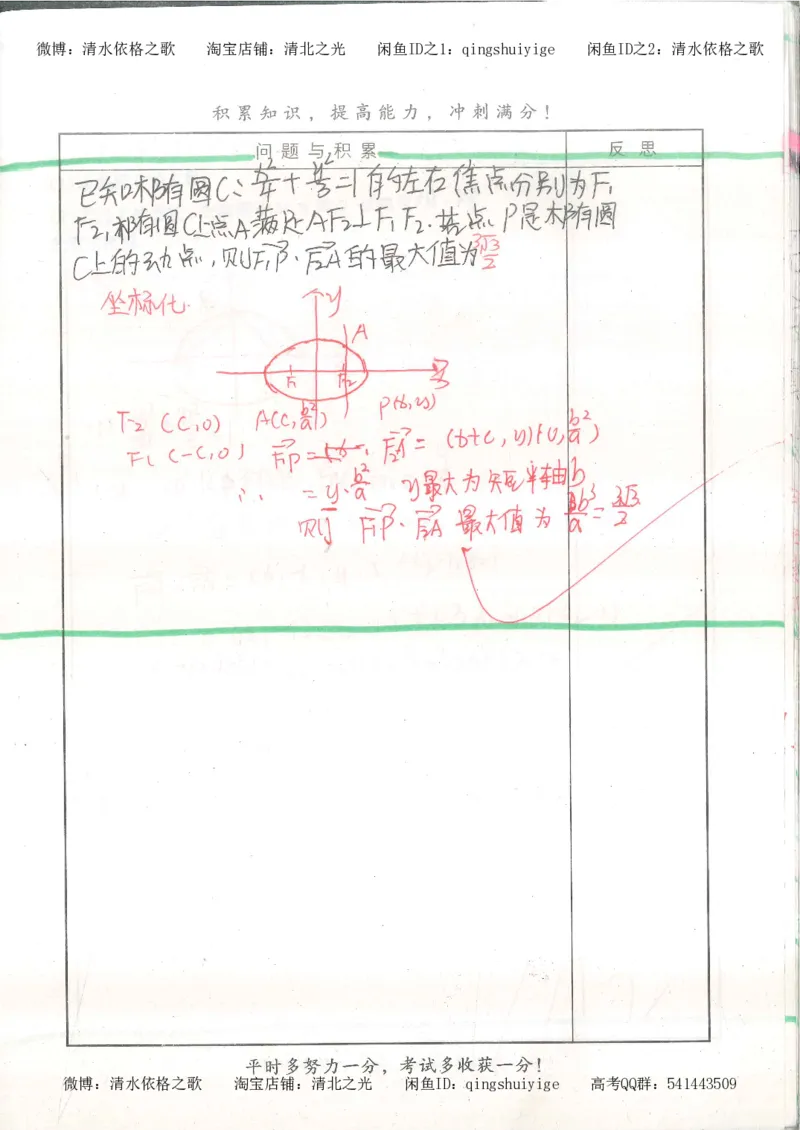 微博：清水依格之歌 淘宝店铺：清北之光 闲鱼ID之1：qingshuiyige 闲鱼ID之2：清水依格之歌
积累知识，提高能力，冲刺满分！
问题与积累 反思
已知椭圆C：x²/4+y²/3=1的左右焦点分别为F₁
F₂，椭圆C上点A满足AF₂⊥F₁F₂．若点P是椭圆
C上的动点，则F₁P·F₂A的最大值为3√3/2
坐标化
y
A
F₁ F₂
F₂(c,0) A(c,b²/a)
F₁(-c,0) F₁P· F₂A=(x+c,y)(0,b²/a)
∴ =y·b²/a y最大为短半轴b
则 F₁P·F₂A 最大值为 b³/a=3√3/2
平时多努力一分，考试多收获一分！
微博：清水依格之歌 淘宝店铺：清北之光 闲鱼ID：qingshuiyige 高考QQ群：541443509